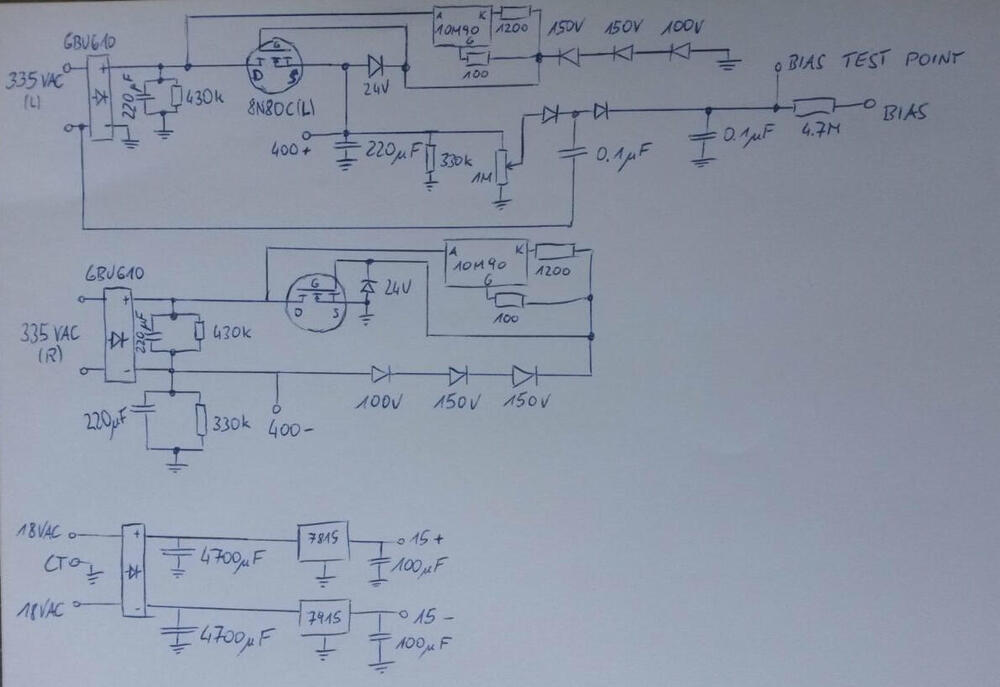 GBU610
335 VAC
(L)
+
-
220µF
430k
G
D
S
8N80C(L)
24V
A
K
10M90
G
1200
100
150V
150V
100V
400+
220µF
330k
1M
0.1µF
0.1µF
BIAS TEST POINT
4.7M
BIAS
GBU610
335 VAC
(R)
+
-
220µF
430k
G
D
S
24V
A
K
10M90
G
1200
100
220µF
330k
400-
100V
150V
150V
18VAC
CT
18VAC
+
-
4700µF
7815
15+
100µF
4700µF
7915
15-
100µF